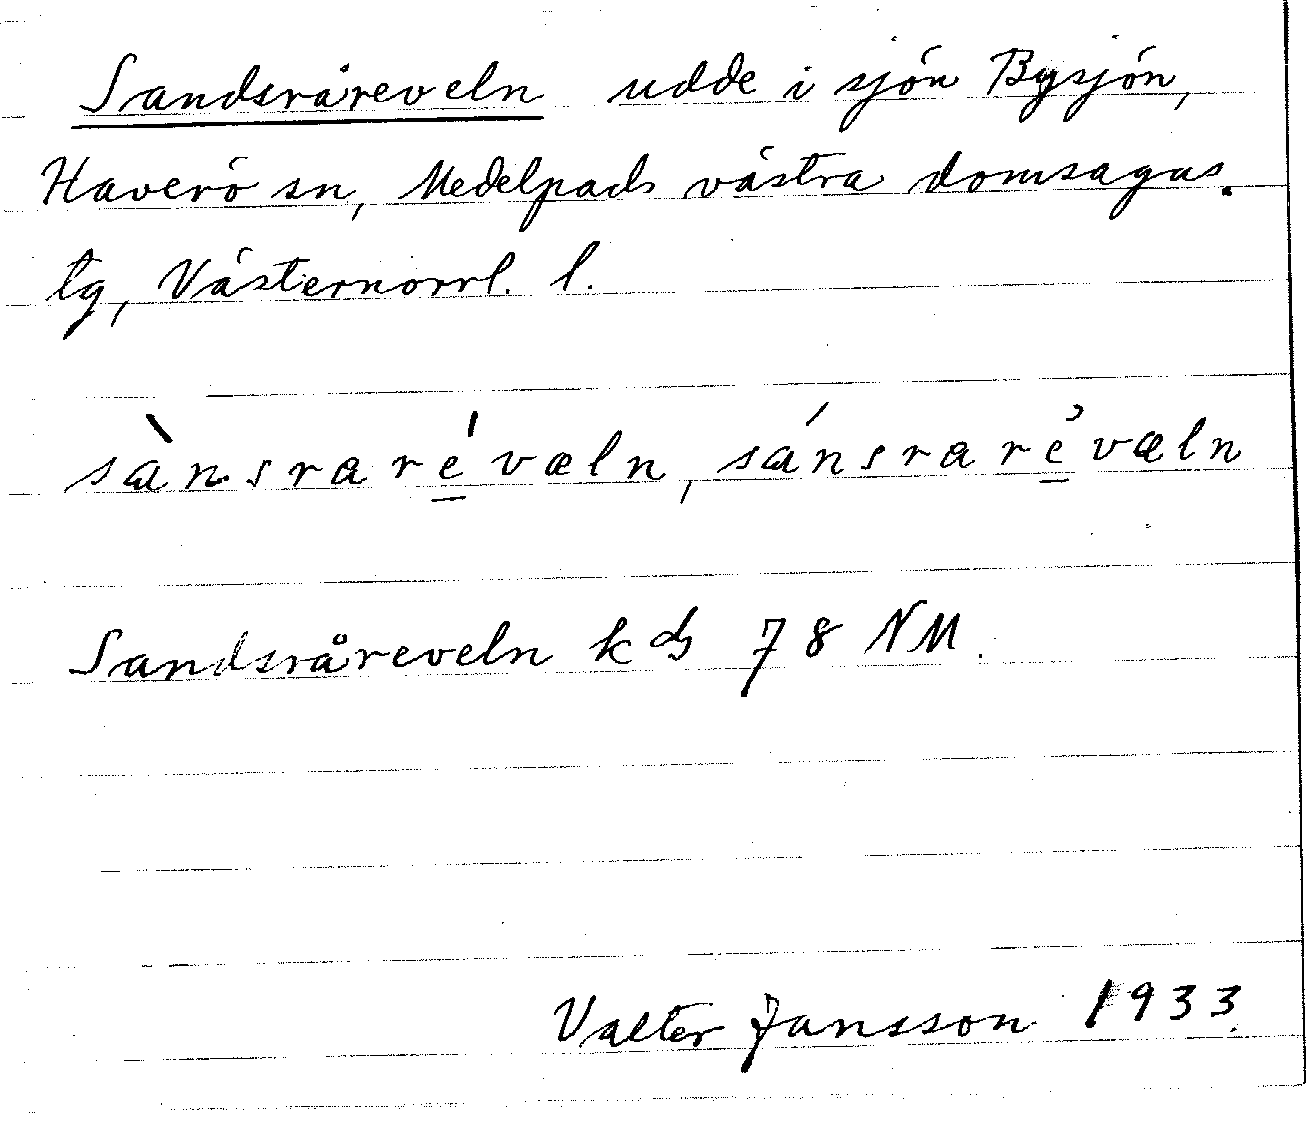 Sandsråreveln udde i sjön Bysjön,
Haverö sn, Medelpads västra domsagas
tg, Västernorrl. l.
sànsraré̱væln, sánsrare̱̓væln
Sandsråreveln kds 78 NM.
Valter Jansson 1933.